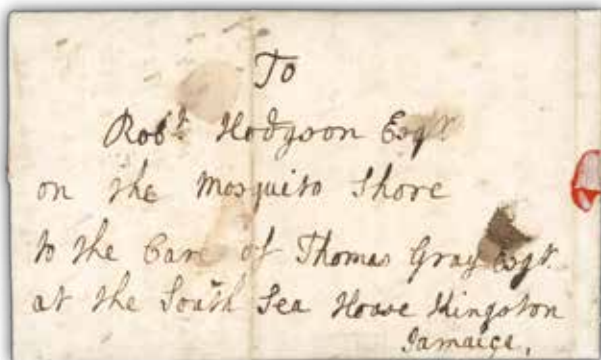 To
Robt. Hodgson Esqr.
on the Mosquito Shore
to the Care of Thomas Gray Esqr.
at the South Sea House Kingston
Jamaica,